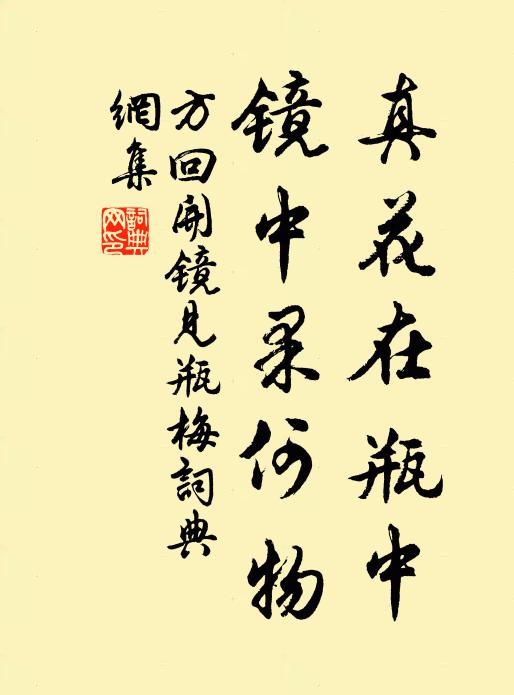 真花在瓶中
鏡中果何物
方回開鏡見瓶梅詞典
網集
詞典
网印